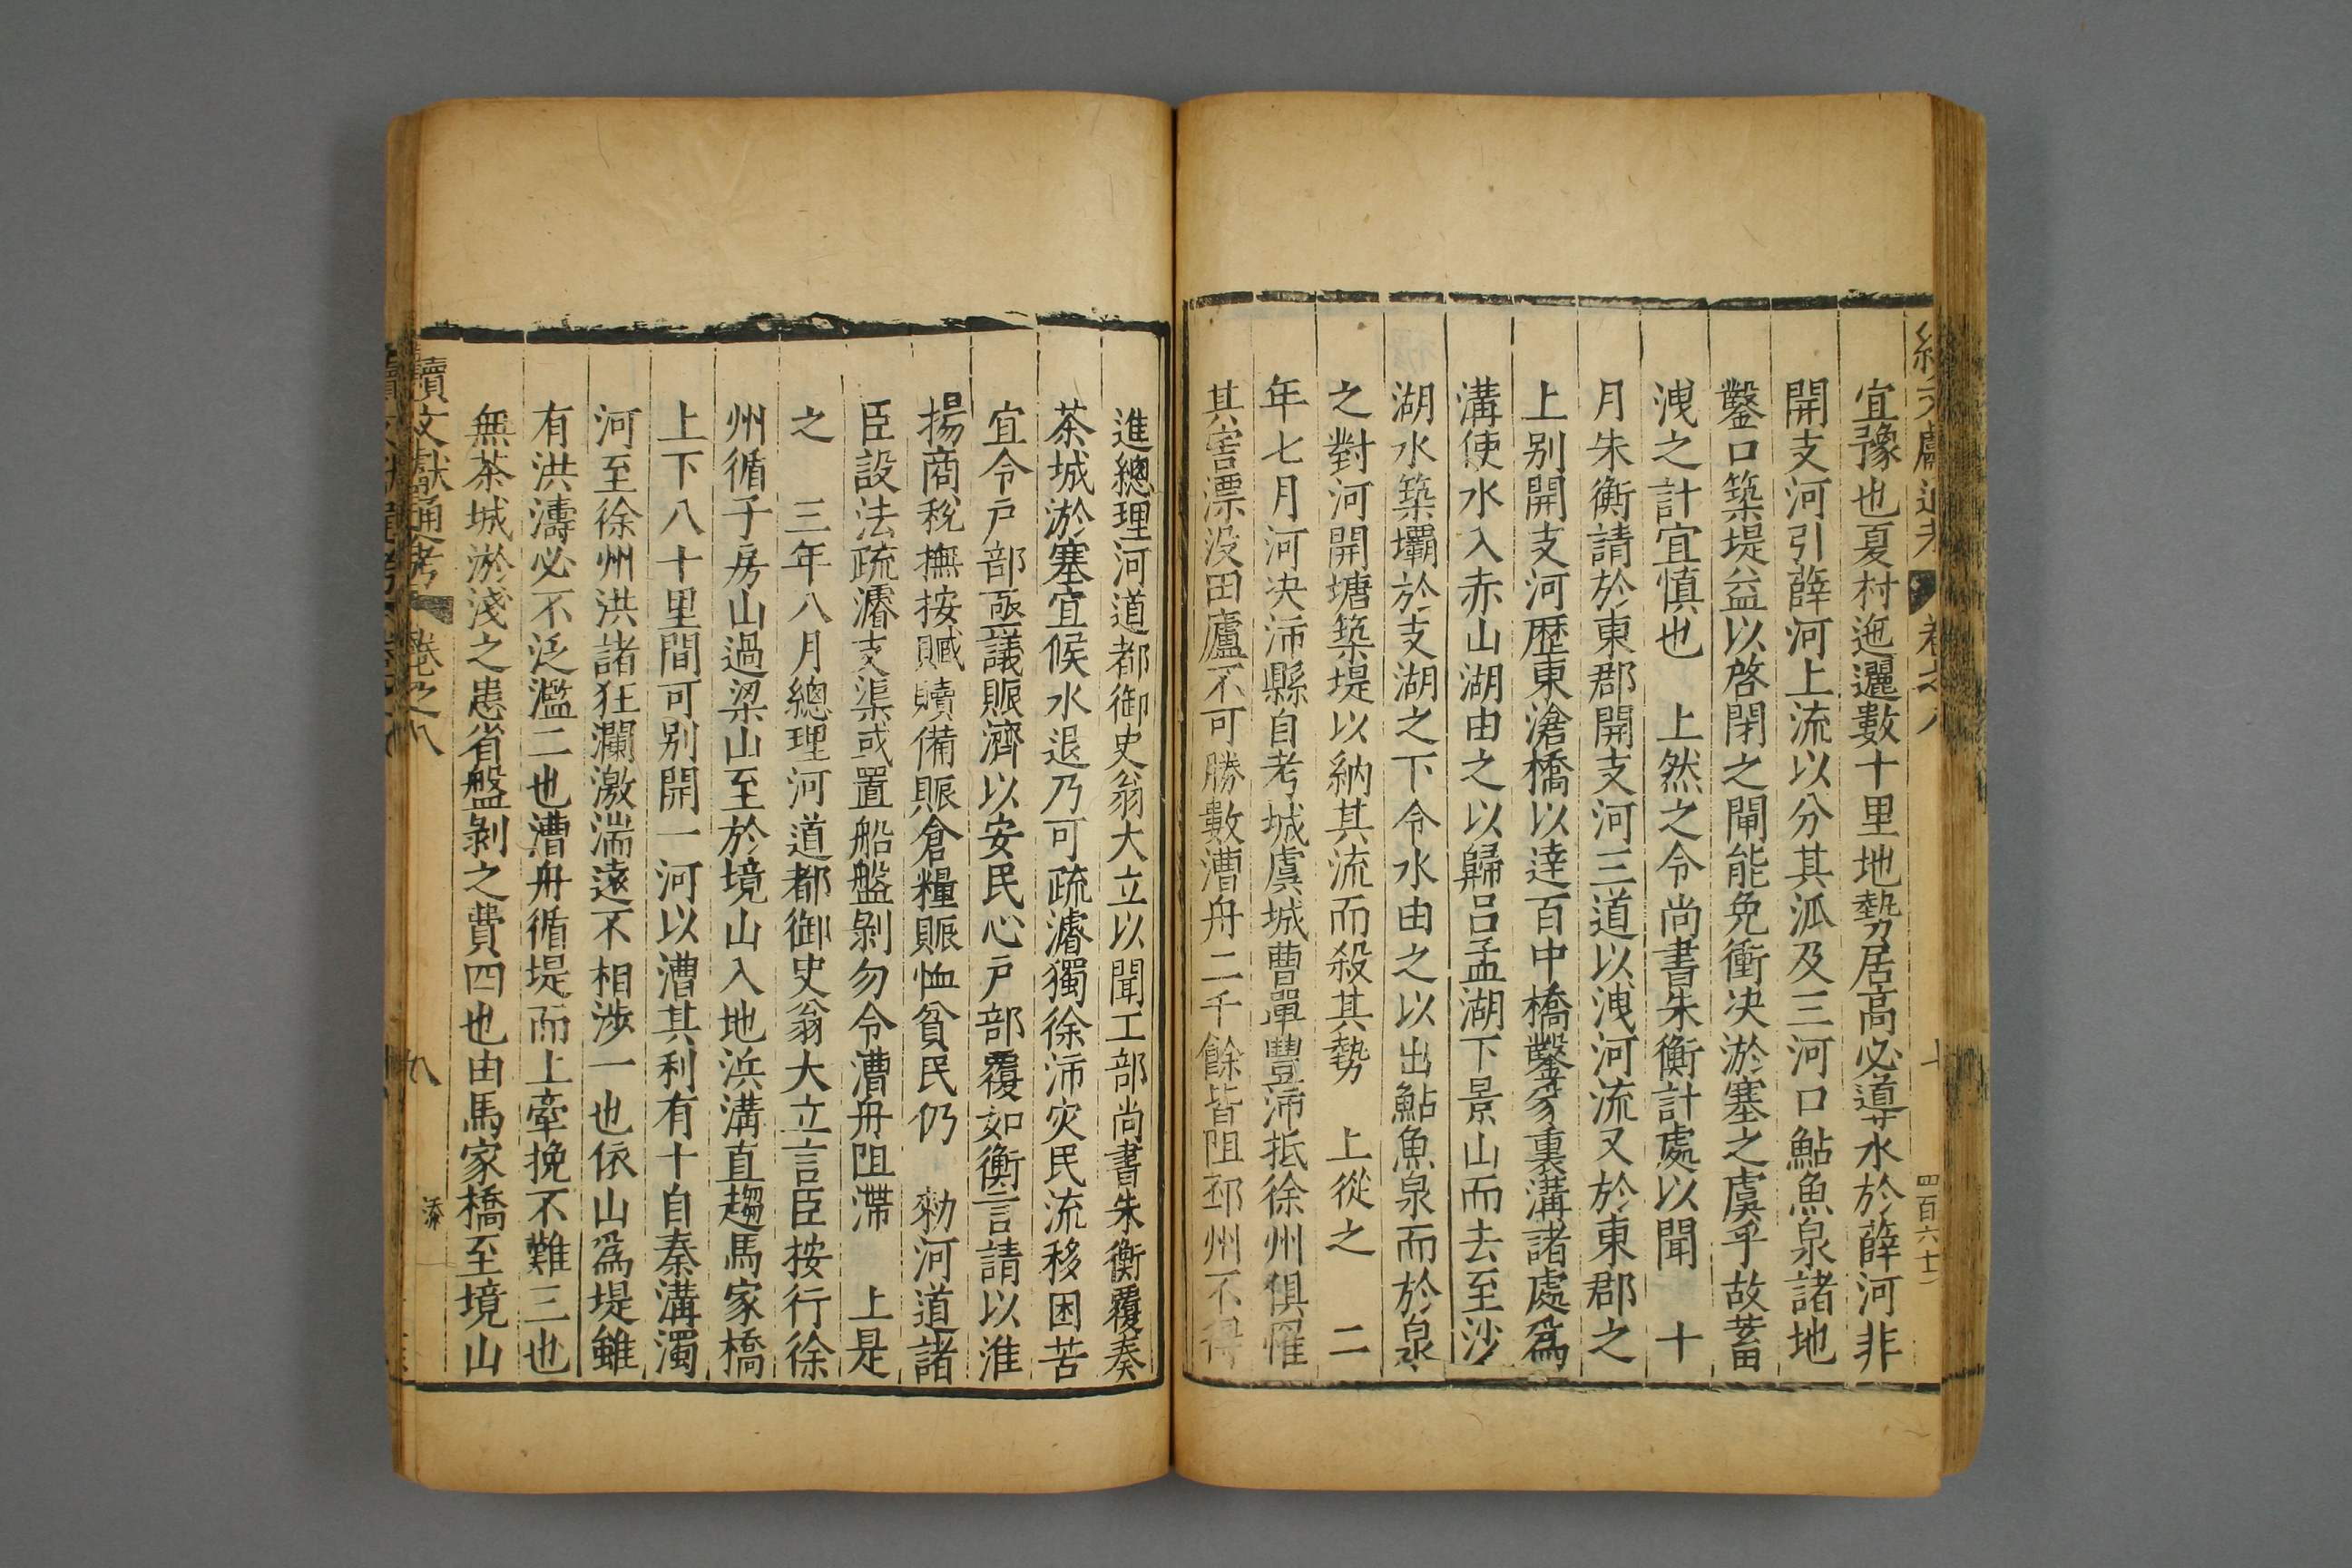 宜豫也夏村迤邐數十里地勢居高必導水於薛河非
開支河引薛河上流以分其泒及三河口鮎魚泉諸地
鑿口築堤益以啓閉之閘能免衝决淤塞之虞乎故蓄
洩之計宜慎也　上然之令尚書朱衡計處以聞　十
月朱衡請於東郡開支河三道以洩河流又於東郡之
上别開支河歴東滄橋以達百中橋鑿豸裏溝諸處爲
溝使水入赤山湖由之以歸呂孟湖下景山而去至沙
湖水築壩於支湖之下令水由之以出鮎魚泉而於泉
之對河開塘築堤以納其流而殺其勢　上從之　二
年七月河决沛縣自考城虞城曹單豐沛抵徐州俱罹
其害漂没田廬不可勝數漕舟二千餘皆阻邳州不得
四百六十
進總理河道都御史翁大立以聞工部尚書朱衡覆奏
茶城淤塞宜候水退乃可疏濬獨徐沛灾民流移困苦
宜令户部亟議賑濟以安民心户部覆如衡言請以淮
揚商稅撫按贓贖備賑倉糧賑恤貧民仍　勑河道諸
臣設法疏濬支渠或置船盤剝勿令漕舟阻滯　上是
之　三年八月總理河道都御史翁大立言臣按行徐
州循子房山過梁山至於境山入地浜溝直趨馬家橋
上下八十里間可别開一河以漕其利有十自秦溝濁
河至徐州洪諸狂瀾激湍遠不相涉一也依山爲堤雖
有洪濤必不泛濫二也漕舟循堤而上牽挽不難三也
無茶城淤淺之患省盤剝之費四也由馬家橋至境山
續文獻通考　卷之八